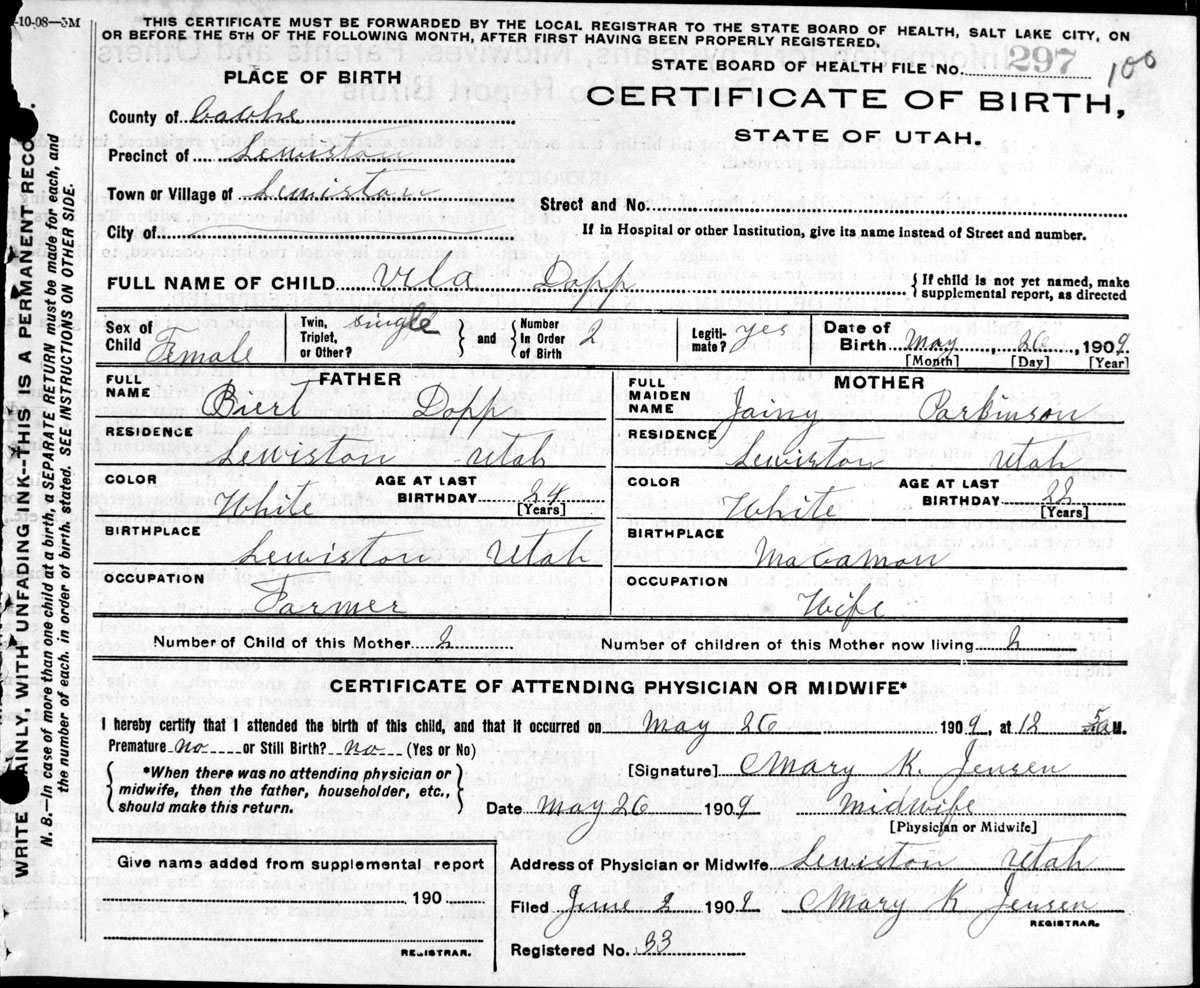 -10-08—5M
THIS CERTIFICATE MUST BE FORWARDED BY THE LOCAL REGISTRAR TO THE STATE BOARD OF HEALTH, SALT LAKE CITY, ON
OR BEFORE THE 5TH OF THE FOLLOWING MONTH, AFTER FIRST HAVING BEEN PROPERLY REGISTERED.
STATE BOARD OF HEALTH FILE No. 297 100
PLACE OF BIRTH
CERTIFICATE OF BIRTH,
STATE OF UTAH.
County of Cache
Precinct of Lewiston
Town or Village of Lewiston
Street and No.
City of
If in Hospital or other Institution, give its name instead of Street and number.
FULL NAME OF CHILD Vila Dopp { If child is not yet named, make supplemental report, as directed
Sex of Child Female Twin, Triplet, or Other? single } and { Number In Order of Birth 2 Legiti-mate? yes Date of Birth May 26, 1909.
[Month] [Day] [Year]
FATHER MOTHER
FULL NAME Biert Dopp FULL MAIDEN NAME Jainy Parkinson
RESIDENCE Lewiston Utah RESIDENCE Lewiston Utah
COLOR White AGE AT LAST BIRTHDAY 24 [Years] COLOR White AGE AT LAST BIRTHDAY 22 [Years]
BIRTHPLACE Lewiston Utah BIRTHPLACE
OCCUPATION Farmer OCCUPATION Wife
Number of Child of this Mother 2 Number of children of this Mother now living 2
CERTIFICATE OF ATTENDING PHYSICIAN OR MIDWIFE*
I hereby certify that I attended the birth of this child, and that it occurred on May 26 1909, at 12 M.
Premature no or Still Birth? no (Yes or No)
{ *When there was no attending physician or midwife, then the father, householder, etc., should make this return. }
[Signature] Mary K. Jensen
Date May 26 1909 Midwife
[Physician or Midwife]
Give name added from supplemental report
190
REGISTRAR.
Address of Physician or Midwife Lewiston Utah
Filed June 2 1909 Mary K Jensen
REGISTRAR.
Registered No. 33
WRITE AINLY, WITH UNFADING INK—THIS IS A PERMANENT RECO
N. B.—In case of more than one child at a birth, a SEPARATE RETURN must be made for each, and
the number of each, in order of birth, stated. SEE INSTRUCTIONS ON OTHER SIDE.